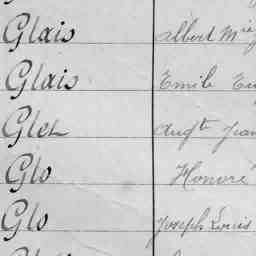 Glais Albert Mie
Glais Emile Eu
Glet Augte Jean
Glo Honoré
Glo Joseph Louis